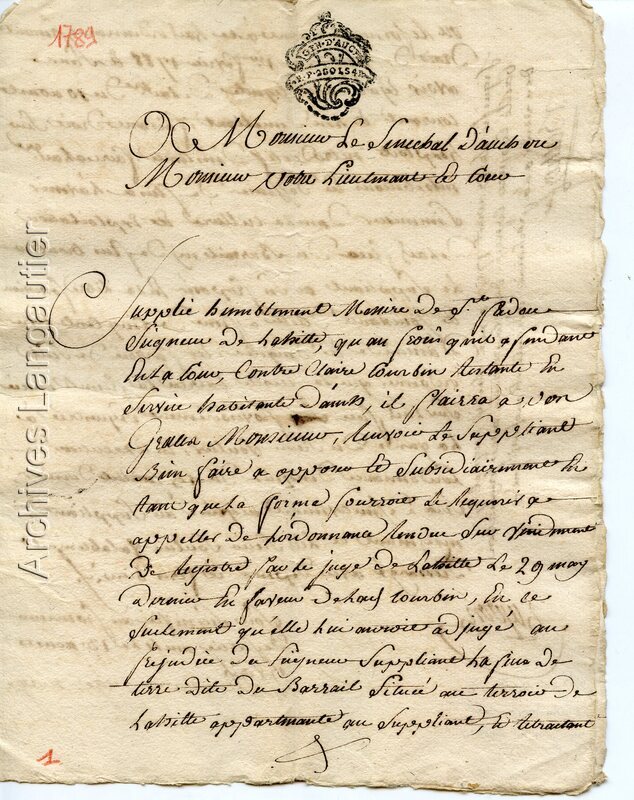 1789
GEN. D'AUCH
A Monsieur le Senechal D'auch ou
Monsieur votre Lieutenant et Cour
Supplie humblement Messire de St.
Seigneur de Lahitte, qu'au procès qu'il a pendant
En La Cour, Contre Claire Courbin restante En
Service habitante D'auch, il plairra a vos
Graces Monsieur, Le Suppliant
Bien faire a opposer et Subsidiairement En
tant que La forme pourroit Le requerir a
appeller de L'ordonnance rendue Sur
De Registre par le juge de Lahitte Le 29 may
dernier En faveur de Courbin, En ce
Seulement qu'elle lui auroit adjugé au
prejudice du Seigneur Suppliant La piece de
terre dite du Barrail Située au terroir de
Lahitte appartenante au Suppliant, et retractant
1
Archives Langautier